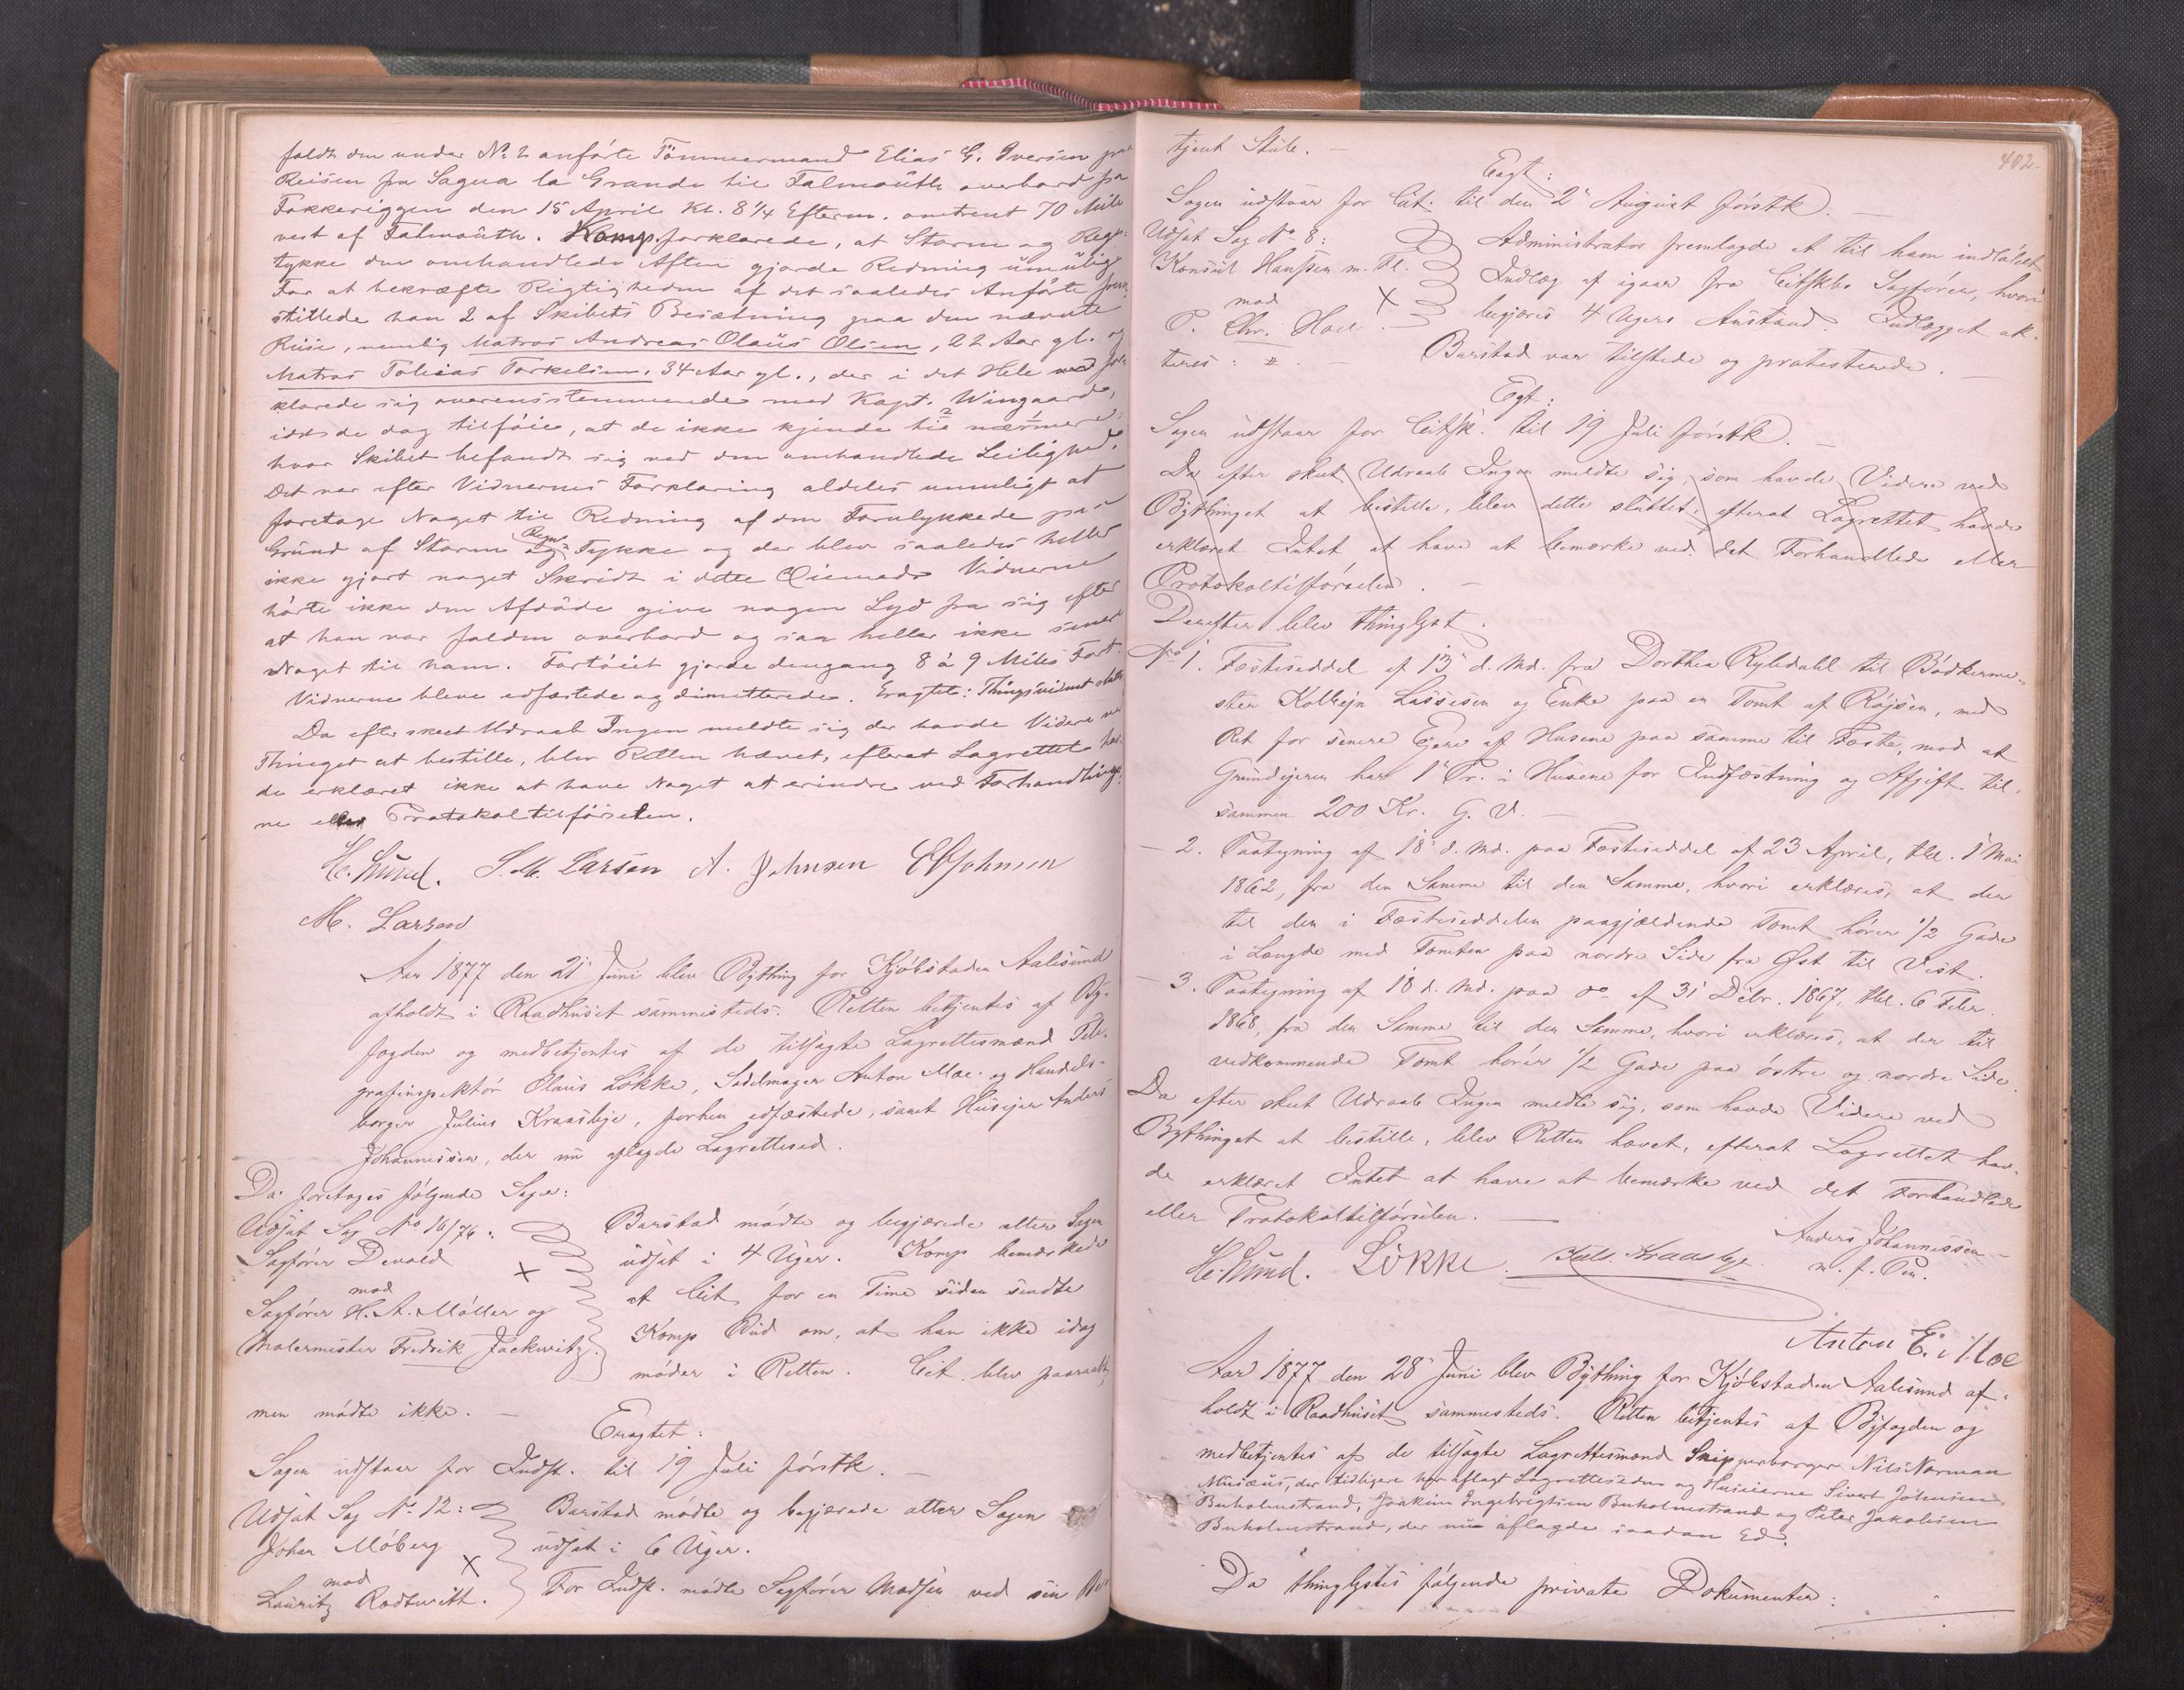 faldt den under No 2 anførte Tømmermand Elias G. Iversen paa
Reisen fra Sagua la Grande til Falmouth overbord fra
Fokkeriggen den 15 April Kl. 8 1/4 Efterm. omtrent 70 Mile
vest af Falmouth. Komp. forklarede, at Storm og Regn-
tykke den omhandlede Aften gjorde Redning umulig.
For at bekræfte Rigtigheden af det saaledes Anførte frem-
stillede han 2 af Skibets Besætning paa den nævnte
Reise, nemlig Matros Andreas Olaüs Olsen, 22 Aar gl. og
Matros Tobias Torkelsen, 34 Aar gl., der i det Hele for-
klarede sig overensstemmende med Kapt. Wingaard,
idet de dog tilføie, at de ikke kjende til nærmere,
hvor Skibet befandt sig ved den omhandlede Leilighed.
Det var efter Vidnernes Forklaring aldeles umuligt at
foretage Noget til Redning af den Forulykkede paa
Grund af Storm og Regn-Tykke og der blev saaledes heller
ikke gjort noget Skridt i dette Øiemed. Vidnerne
hørte ikke den Afdøde give nogen Lyd fra sig efter
at han var falden overbord og saa heller ikke senere
Noget til ham. Fartøiet gjorde dengang 8 à 9 Miles Fart.
Vidnerne bleve edfæstede og dimitterede. Eragtet: Thingsvidnet slutt.
Da efter skeet Udraab Ingen meldte sig der havde Videre ved
Thinget at bestille, blev Retten hævet, efterat Lagrettet hav-
de erklæret ikke at have Noget at erindre ved Forhandlinger-
ne eller Protokoltilførselen.
H. Lund. S. M. Larsen A. Johnsen E Johnsen
M. Larsen
Aar 1877 den 21 Juni blev Bything for Kjøbstaden Aalesund
afholdt i Raadhuset sammesteds. Retten betjentes af By-
fogden og medbetjentes af de tilsagte Lagrettesmænd Tele-
grafinspektør Olaus Løkke, Sadelmager Anton Moe og Handels-
borger Julius Kraasbye, forhen edfæstede, samt Huseier Anders
Johannessen, der nu aflagde Lagretteseed.
Da foretoges følgende Sager:
Udsat Sag No 16/76:
Sagfører Devold
mod
Sagfører H. A. Møller og
Malermester Fredrik Jackwitz.
Barstad mødte og begjærede atter Sagen
udsat i 4 Uger. Komp bemærkede
at Cit. for en Time siden sendte
Komp Bud om, at han ikke idag
møder i Retten. Cit. blev paaraabt,
men mødte ikke. —
Eragtet:
Sagen udstaar for Indst. til 19 Juli førstk. —
Udsat Sag No 12:
Johan Møberg
mod
Lauritz Rødtwitt.
Barstad mødte og begjærede atter Sagen
udsat i 6 Uger.
For Indst. mødte Sagfører Madsen ved sin Be-
402.
tjent Stüle. —
Eragt:
Sagen udstaar for Cit. til den 2 August førstk. —
Udsat Sag No 8:
Konsul Hanssen m. Fl.
mod
P. Chr. Hoel.
Administrator fremlagde et til ham indløbet
Indlæg af igaar fra Citskbs Sagfører, hvori
begjæres 4 Ugers Anstand. Indlægget ak-
teres:
Barstad var tilstede og protesterede. —
Eragt:
Sagen udstaar for Citsk. til 19 Juli førstk. —
Da efter skeet Udraab Ingen meldte sig, som havde Videre ved
Bythinget at bestille, blev dette sluttet, efterat Lagrettet havde
erklæret Intet at have at bemærke ved det Forhandlede eller
Protokoltilførselen. —
Derefter blev thinglyst:
No 1. Fæsteseddel af 13 d. Md. fra Dorthea Rybdahl til Bødkerme-
ster Kolbejn Lassesen og Enke paa en Tomt af Røjsen, med
Ret for senere Ejere af Husene paa samme til Fæste, mod at
Grundejeren har 1 Pr. i Husene for Indfæstning og Afgift til-
sammen 200 Kr. G. V. —
— 2. Paategning af 18 d. Md. paa Fæsteseddel af 23 April, thl. 1 Mai
1862, fra den Samme til den Samme, hvori erklæres, at der
til den i Fæsteseddelen paagjældende Tomt hører 1/2 Gade
i Længde med Tomten paa nordre Side fra Øst til Vest.
— 3. Paategning af 18 d. Md. paa do af 31 Debr. 1867, thl. 6 Febr.
1868, fra den Samme til den Samme, hvori erklæres, at der til
vedkommende Tomt hører 1/2 Gade paa østre og nordre Side.
Da efter skeet Udraab Ingen meldte sig, som havde Videre ved
Bythinget at bestille, blev Retten hævet, efterat Lagrettet hav-
de erklæret Intet at have at bemærke ved det Forhandlede
eller Protokoltilførselen. —
H. Lund. Løkke. Jul. Kraasbye. Anders Johannessen
m. f. Pen.
Anton E. Moe
Aar 1877 den 28 Juni blev Bything for Kjøbstaden Aalesund af-
holdt i Raadhuset sammesteds. Retten betjentes af Byfogden og
medbetjentes af de tilsagte Lagrettesmænd Nils Norman
Musæus, der tidligere har aflagt Lagretteseden og Huseierne Sivert Johnsen
Buholmstrand, Joakim Ingebrigtsen Buholmstrand og Peter Jakobsen
Buholmstrand, der nu aflagde saadan Ed.
Da thinglystes følgende private Dokumenter: